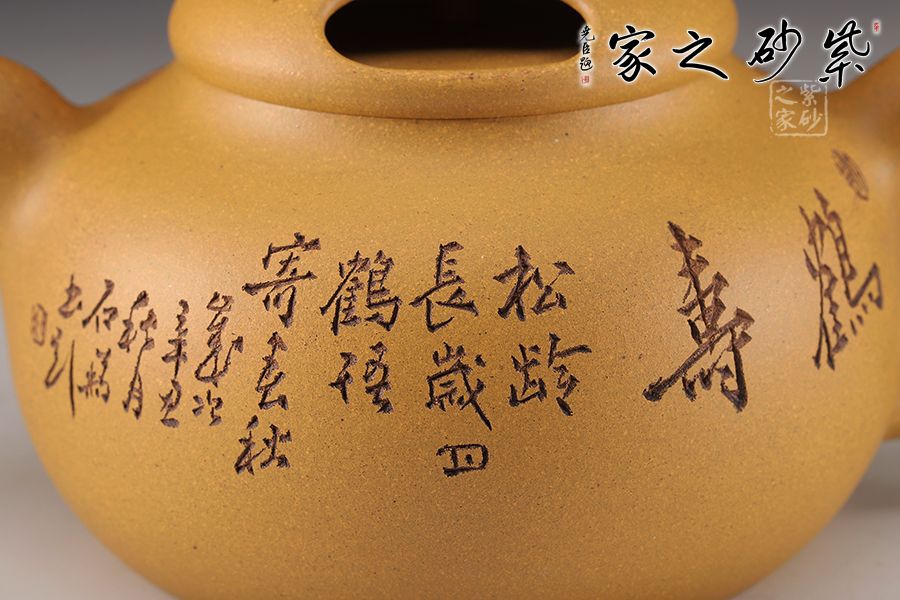 紫砂之家
堯臣題
紫砂
之家
鶴
壽
松齡
長歲月
鶴語
寄春秋
歲次
辛丑
秋月
石
書刻